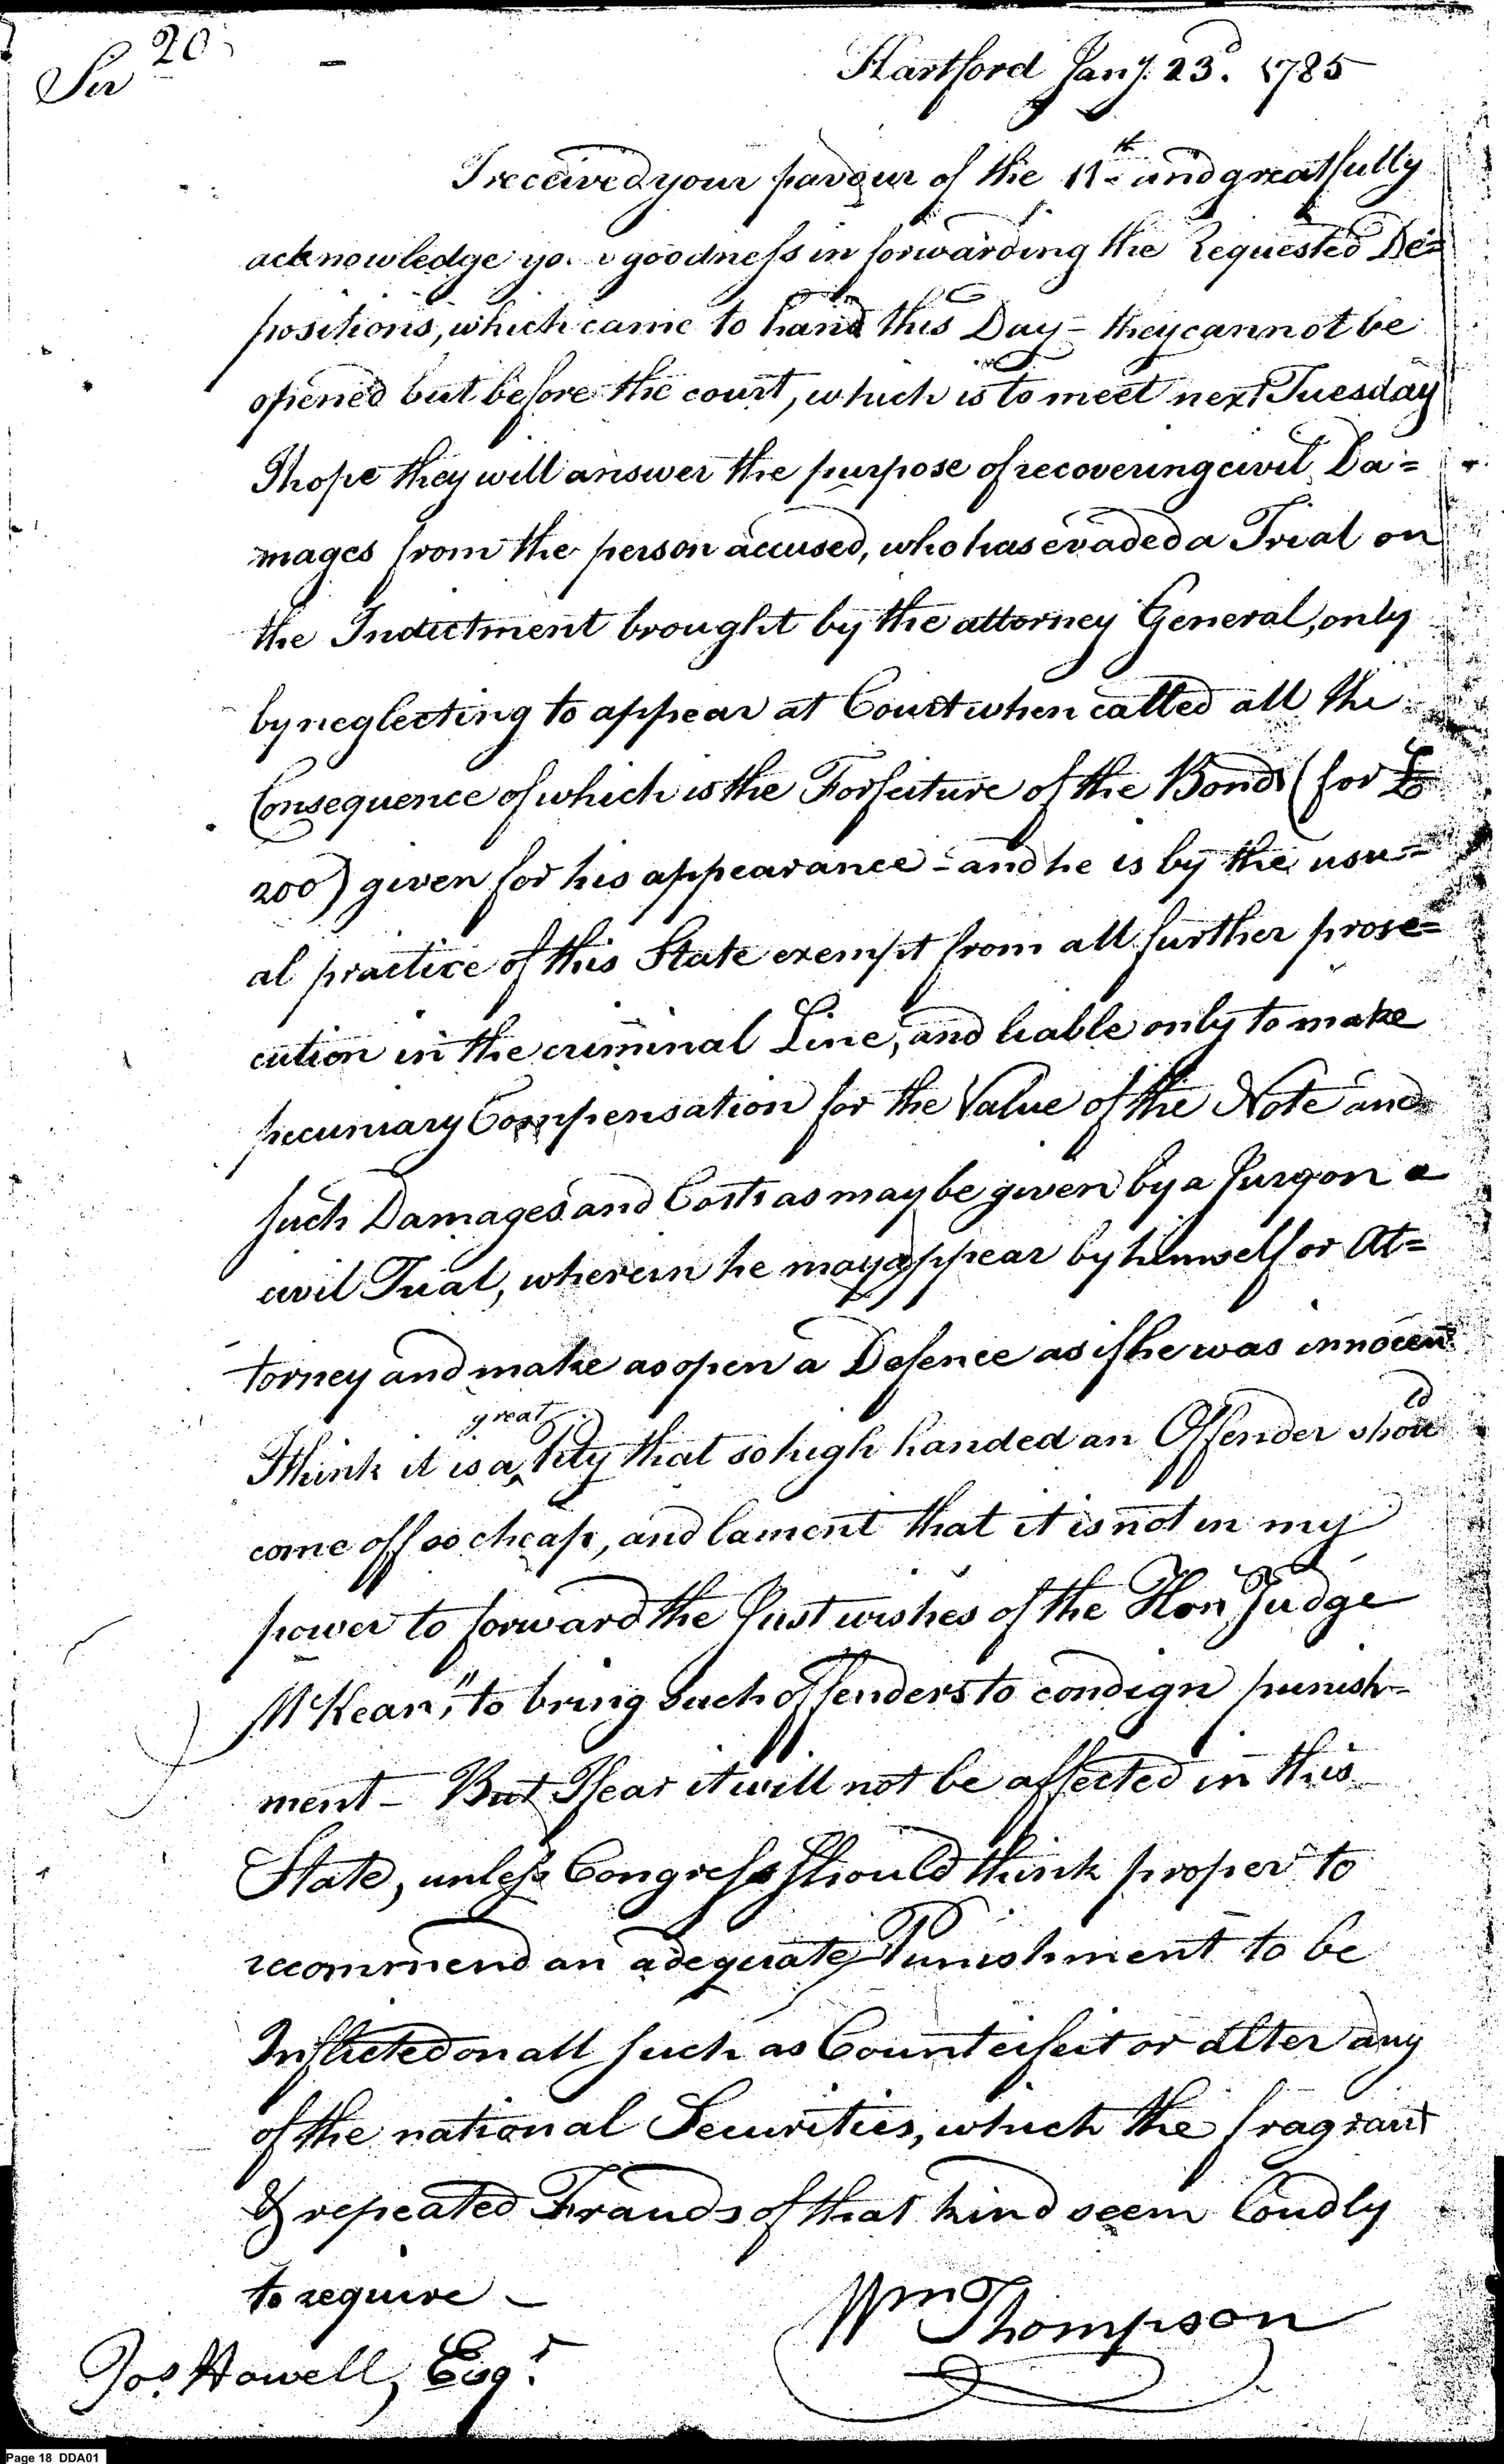 20
Sir
Hartford Jany. 23d. 1785
I received your favour of the 11th and greatfully
acknowledge your goodness in forwarding the Requested De=
positions, which came to hand this Day - they cannot be
opened but before the court, which is to meet next Tuesday
I hope they will answer the purpose of recovering civil Da=
mages from the person accused, who has evaded a Trial on
the Indictment brought by the attorney General, only
by neglecting to appear at Court when called all the
Consequence of which is the Forfeiture of the Bonds (for £
200) given for his appearance - and he is by the usu=
al practice of this State exempt from all further prose=
cution in the criminal Line, and liable only to make
pecuniary Compensation for the Value of the Note and
such Damages and Costs as may be given by a Jury on a
civil Trial, wherein he may appear by himself or At=
torney and make as open a Defence as if he was innocent
great
I think it is a ^ Pity that so high handed an Offender should
come off so cheap, and lament that it is not in my
power to forward the Just wishes of the Hon Judge
McKean, "to bring such offenders to condign punish=
ment - But I fear it will not be affected in this
State, unless Congress should think proper to
recommend an adequate Punishment to be
Inflicted on all such as Counterfeit or alter any
of the national Securities, which the fragrant
& repeated Frauds of that kind seem loudly
to require -
Wm Thompson
Jos. Howell, Esqr.
Page 18 DDA01